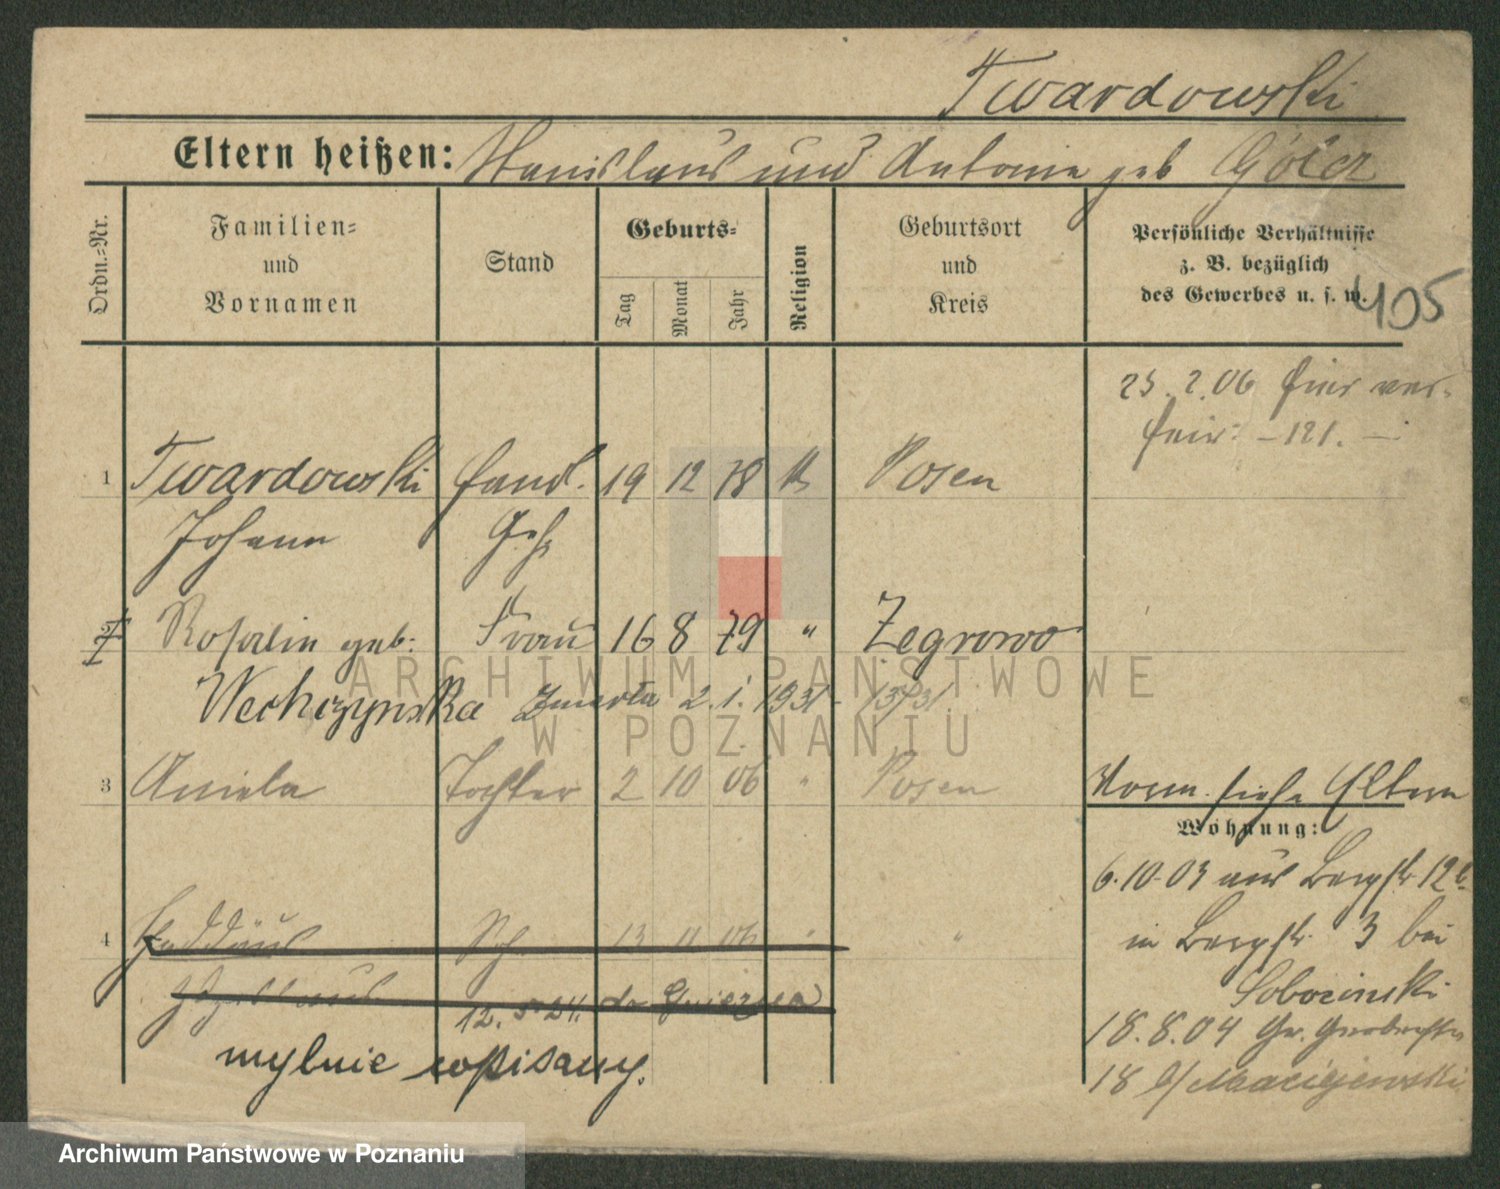 Twardowski
Eltern heißen: Stanislaus und Antonie geb
Ordn.-Nr.
Familien-
und
Vornamen
Stand
Geburts-
Tag
Monat
Jahr
Religion
Geburtsort
und
Kreis
Persönliche Verhältnisse
z. B. bezüglich
des Gewerbes u. s. w.
405
25.2.06 hier ver-
heir: - 121. -
1 Twardowski Handl. 19 12 78 k Posen
Johann Geh
2 Rosalie geb: Frau 16 8 79 " Zegrowo
Wechczynska Zmarła 2.1.1931 - 13/31
3 Aniela Tochter 2 10 06 " Posen
Verm. siehe Eltern
Wohnung:
6.10.03 aus Bergstr. 12b
in Bergstr. 3 bei
Sobocinski
18.8.04 Gr. Gerberstr
18 b/ Maciejewski
4 Thaddäus 13 11 06 " "
12. 5. 24. do Gniezna
mylnie wpisany.
ARCHIWUM PAŃSTWOWE
W POZNANIU
Archiwum Państwowe w Poznaniu